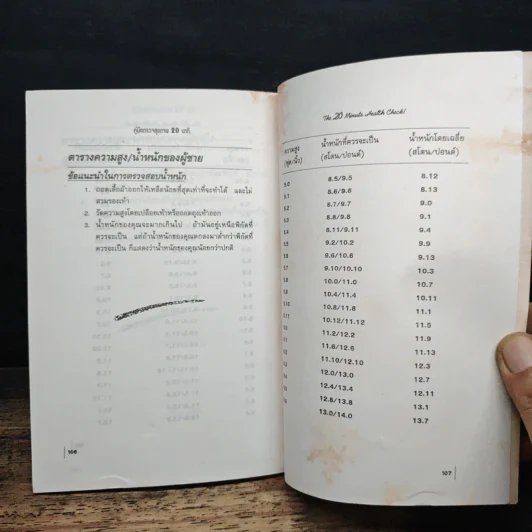 คู่มือตรวจสุขภาพ 20 นาที
ตารางความสูง/น้ำหนักของผู้ชาย
ข้อแนะนำในการตรวจสอบน้ำหนัก
1. ถอดเสื้อผ้าออกให้เหลือน้อยที่สุดเท่าที่จะทำได้ และไม่
สวมรองเท้า
2. วัดความสูงโดยเปลือยเท้าหรือถอดถุงเท้าออก
3. น้ำหนักของคุณจะมากเกินไป ถ้ามันอยู่เหนือพิกัดที่
ควรจะเป็น แต่ถ้าน้ำหนักของคุณตกลงมาต่ำกว่าพิกัดที่
ควรจะเป็น ก็แสดงว่าน้ำหนักของคุณน้อยกว่าปกติ
The 20 Minute Health Check!
ความสูง น้ำหนักที่ควรจะเป็น น้ำหนักโดยเฉลี่ย
(ฟุต/นิ้ว) (สโตน/ปอนด์) (สโตน/ปอนด์)
8.5/9.5 8.12
8.6/9.6 8.13
8.7/9.7 9.0
8.8/9.8 9.1
8.11/9.11 9.4
9.2/10.2 9.9
9.6/10.6 9.13
9.10/10.10 10.3
10.0/11.0 10.7
10.4/11.4 10.11
10.8/11.8 11.1
10.12/11.12 11.5
11.2/12.2 11.9
11.6/12.6 11.13
11.10/12.10 12.3
12.0/13.0 12.7
12.4/13.4 12.11
12.8/13.8 13.1
13.0/14.0 13.7
127